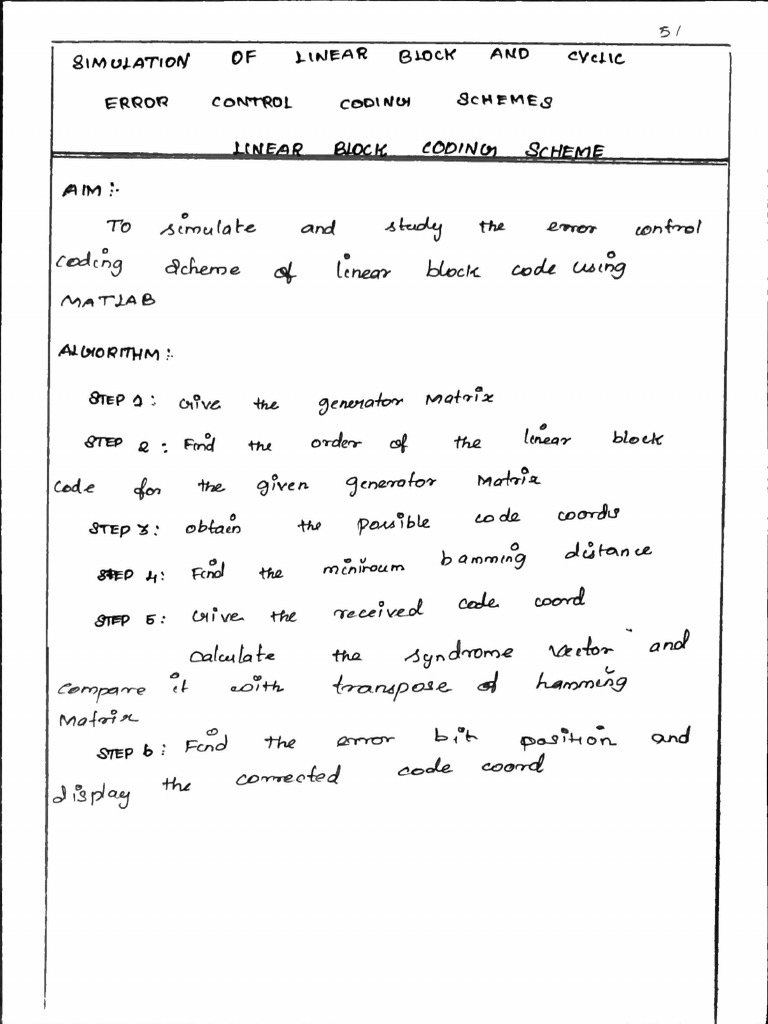 51
SIMULATION OF LINEAR BLOCK AND CYCLIC
ERROR CONTROL CODING SCHEMES
LINEAR BLOCK CODING SCHEME
AIM :-
To simulate and study the error control
coding scheme of linear block code using
MATLAB
ALGORITHM :-
STEP 1 : Give the generator Matrix
STEP 2 : Find the order of the linear block
code for the given generator Matrix
STEP 3 : obtain the possible code coords
STEP 4 : Find the minimum bamming distance
STEP 5 : Give the received code coord
Calculate the syndrome vector and
compare it with transpose of hamming
Matrix
STEP 6 : Find the error bit position and
display the corrected code coord